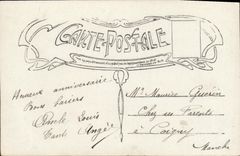 CARTE-POSTALE
Heureux anniversaire
Bons baisers
Oncle Louis
Tante Angèle
Mr Maurice Guérin
Chez ses Parents
à Périgny
Manche